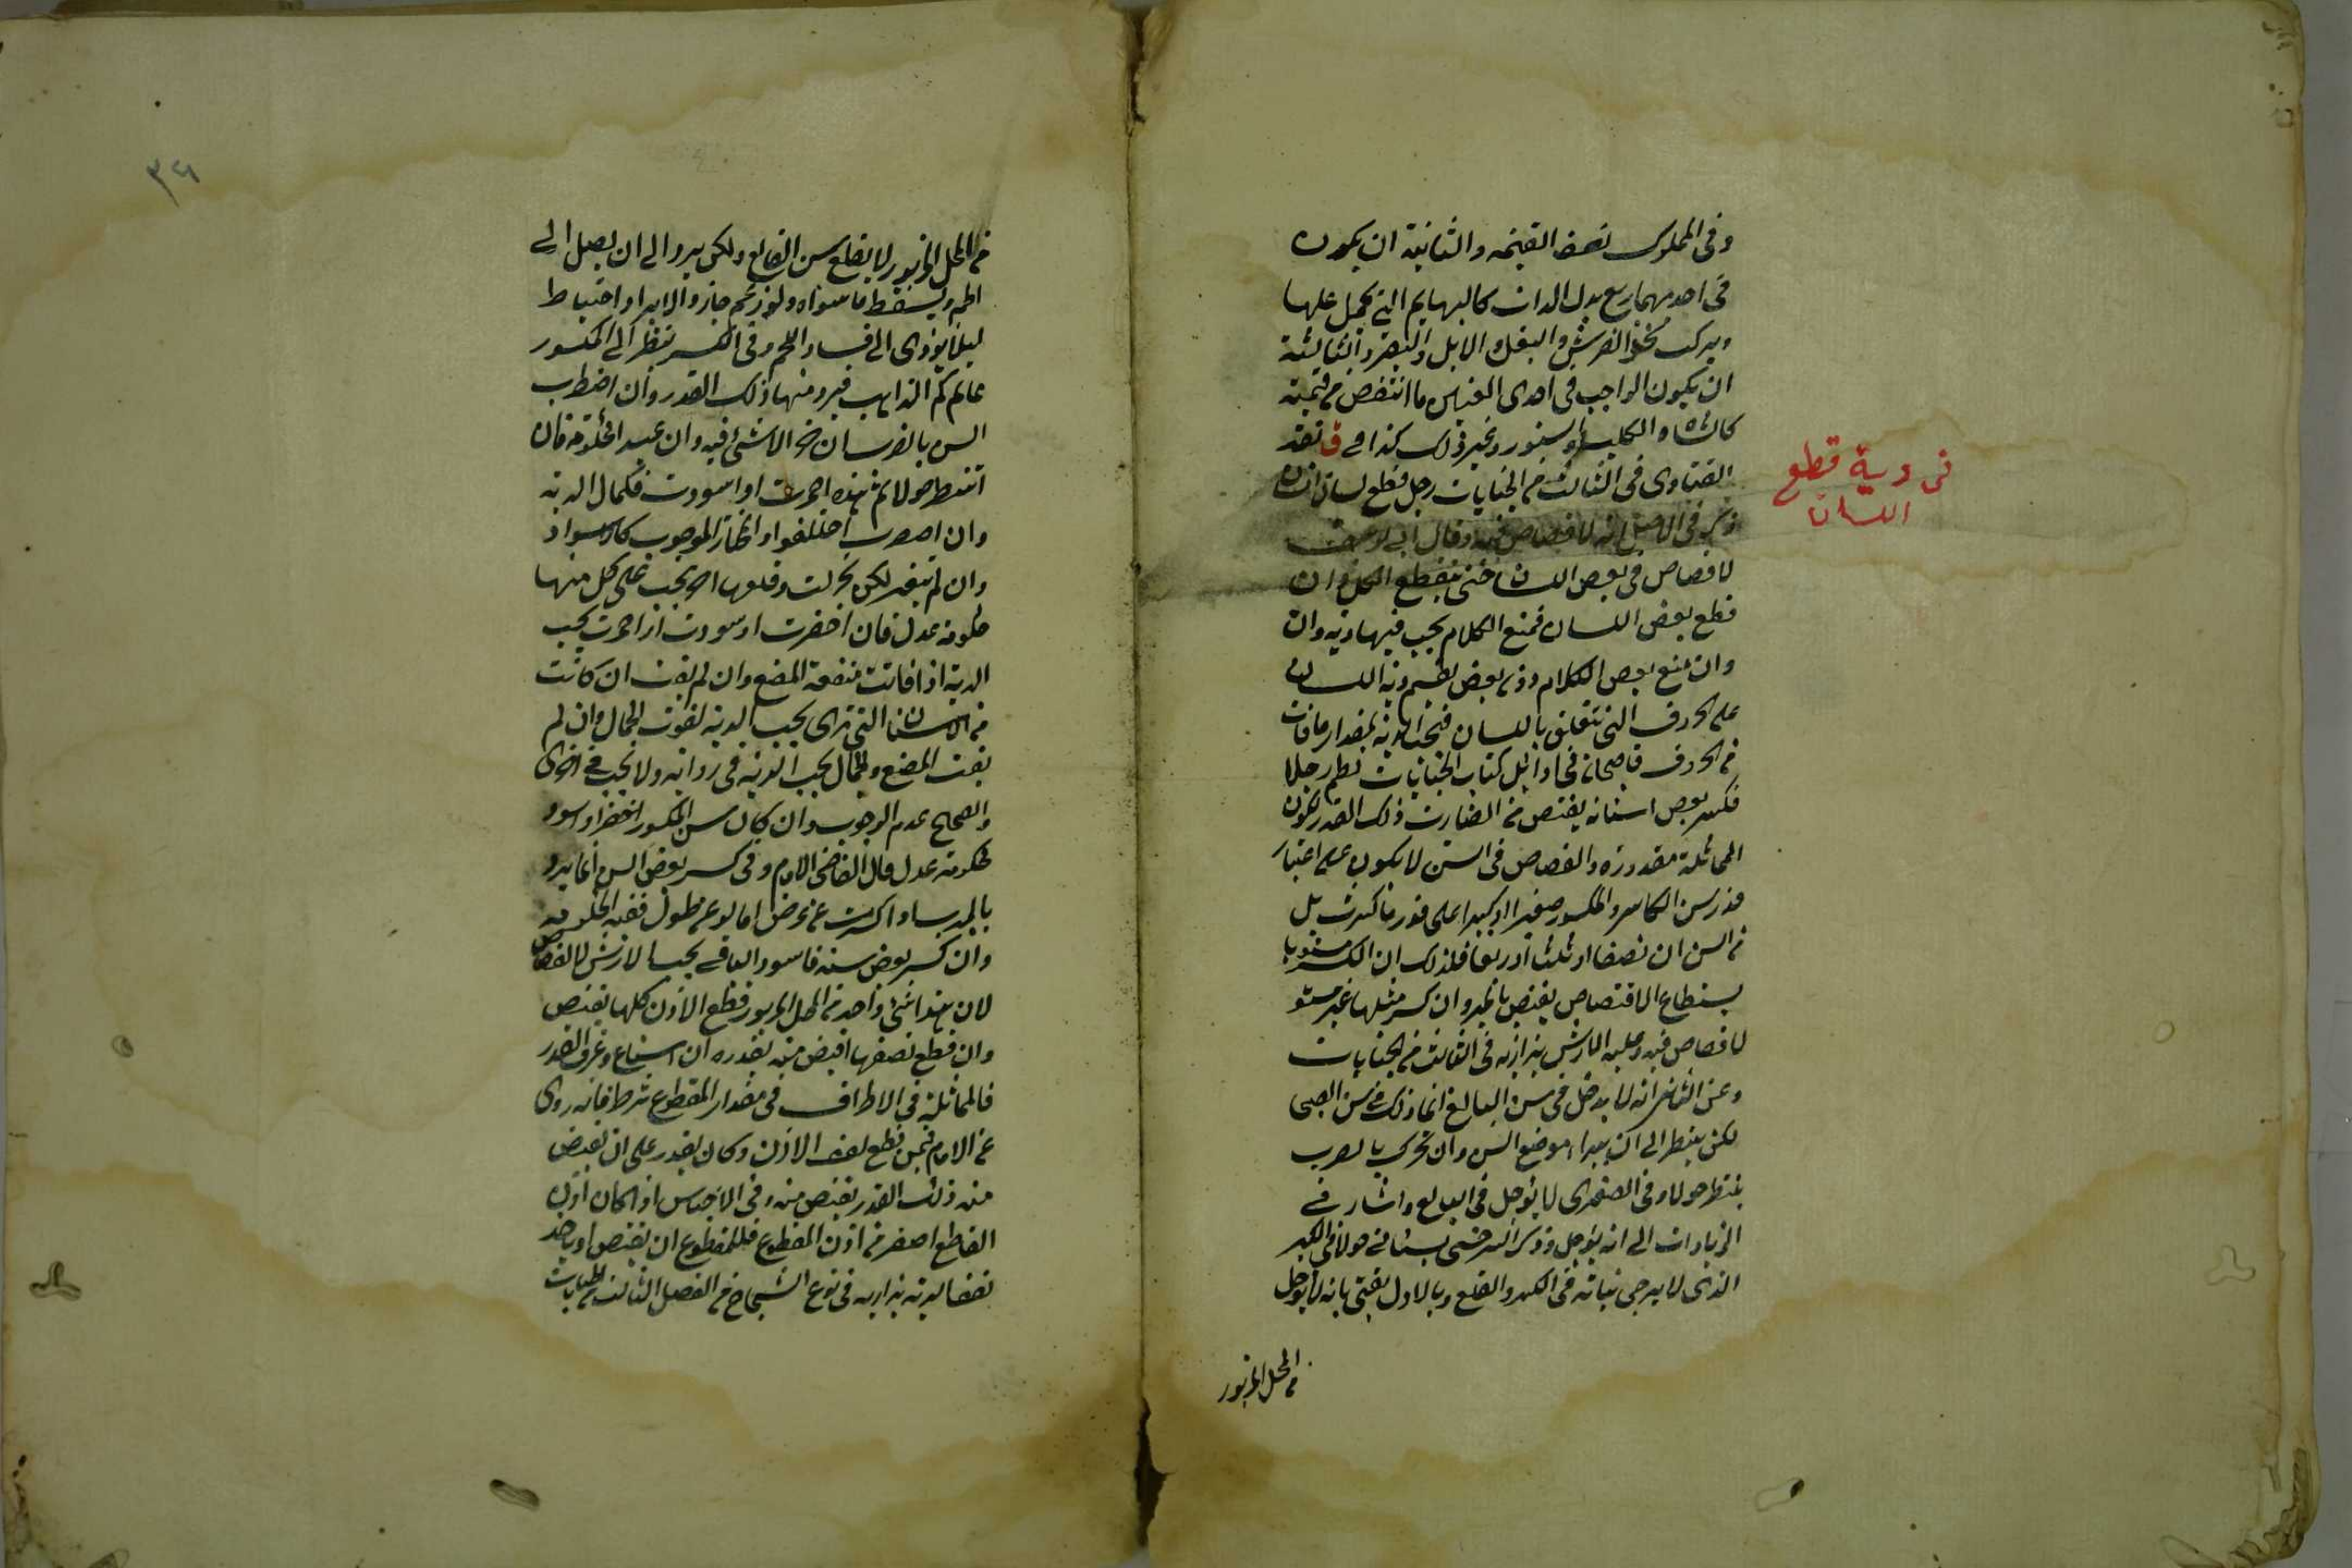 وفى المملوك نصف القيمة والثانية ان يكون
فى احديهما ربع بدل الذات كالبهايم التى يحمل عليها
ويركب نحو الفرس والبغل والابل والبقر والثالثة
ان يكون الواجب فى احدى العينين ما انتقص من قيمته
كالشاة والكلب والسنور وغير ذلك كذا فى ق نقد
الفتاوى فى الثالث من الجنايات رجل قطع لسان انسان
فى دية قطع
اللسان
ذكر فى الاصل انه لا قصاص فيه وقال ابى يوسف
لا قصاص فى بعض اللسان حتى يقطع الكل وان
قطع بعض اللسان فمنع الكلام يجب فيها دية وان
وان منع بعض الكلام دون بعض يقسم دية اللسان
على الحروف التى تتعلق باللسان فيجب الدية بمقدار ما فات
من الحروف قاضيخان فى اوائل كتاب الجنايات لطم رجلا
فكسر بعض اسنانه يقتص من الضارب ذلك القدر لكون
المماثلة مقدورة والقصاص فى السن لا يكون على اعتبار
قدر سن الكاسر والمكسور صغيرا او كبيرا على قدر ما كسرت بل
من السن ان نصفا او ثلثا او ربعا فلذلك ان الكسر مستويا
يستطاع الاقتصاص يقتص بالمبرد وان كسر مثلها غير مستو
لا قصاص فيه وعليه الارش بزازيه فى الثالث من الجنايات
وعن الثانى انه لا يدخل فى سن البالغ انما ذلك فى سن الصبى
لكن ينتظر الى ان يبرأ موضع السن وان تحرك بالضرب
ينتظر حولا وفى الصغرى لا يؤجل فى البالغ واشار فى
الزيادات الى انه يؤجل وذكر السرخسى يستأنى حولا فى الكبير
الذى لا يرجى نباته فى الكسر والقلع وبالاول يفتى بانه لا يؤجل
من المحل المزبور
٣٤١
من المحل المزبور لا يقلع سن القالع ولكن يبرد الى ان يصل الى
اللحم ويسقط ما سواه ولو نزع جاز والابراد احتياط
ليلا يؤدى الى فساد اللحم وفى الكسر ينظر الى المكسور
كم الذاهب فيبرد منها ذلك القدر وان اضطرب
السن بالضرب ان لا شئ فيه وان عبد الحكومة فان
انتظر حولا ثم بهذه احمرت او اسودت فكمال الدية
وان اصفرت اختلفوا والمختار الموجوب كالسواد
وان لم يتغير لكن تحركت وقلعها اخر يجب على كل منهما
حكومة عدل فان اخضرت او سودت او احمرت يجب
الدية اذا فاتت منفعة المضغ وان لم يفت ان كانت
من الاسنان التى ترى يجب الدية لفوت الجمال وان لم
يفت المضغ والجمال يجب الدية فى رواية ولا يجب فى اخرى
والصحيح عدم الوجوب وان كان سن المكسور اخضر او اسود
فحكومة عدل قال القاضى الامام وفى كسر بعض السن انما يبرد
بالمبرد اذا كسرت عن عرض اما لو عن طول ففيه الحكومة
وان كسر بعض سنه فاسود الباقى يجب الارش لا القصاص
لان هذا شئ واحد من المحل المزبور قطع الاذن كلها يقتص
وان قطع نصفها اقتص منه بقدره ان استطاع وعرف القدر
فالمماثلة فى الاطراف فى مقدار المقطوع شرط فانه روى
عن الامام فيمن قطع نصف الاذن وكان يقدر على ان يقتص
منه ذلك القدر يقتص منه وفى الاجناس اذا كان اذن
القاطع اصغر من اذن المقطوع فللمقطوع ان يقتص او ياخذ
نصف الدية بزازيه فى نوع الشجاج من الفصل الثالث من الجنايات